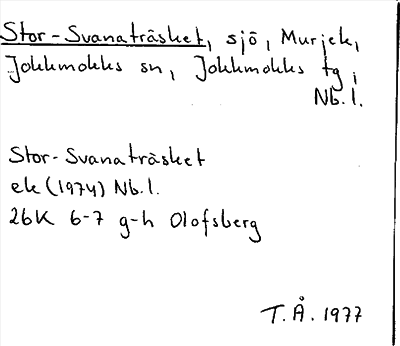 Stor-Svanaträsket, sjö, Murjek,
Jokkmokks sn, Jokkmokks tg,
Nb.l.
Stor-Svanaträsket
ek (1974) Nb.l.
26K 6-7 g-h Olofsberg
T.Å. 1977